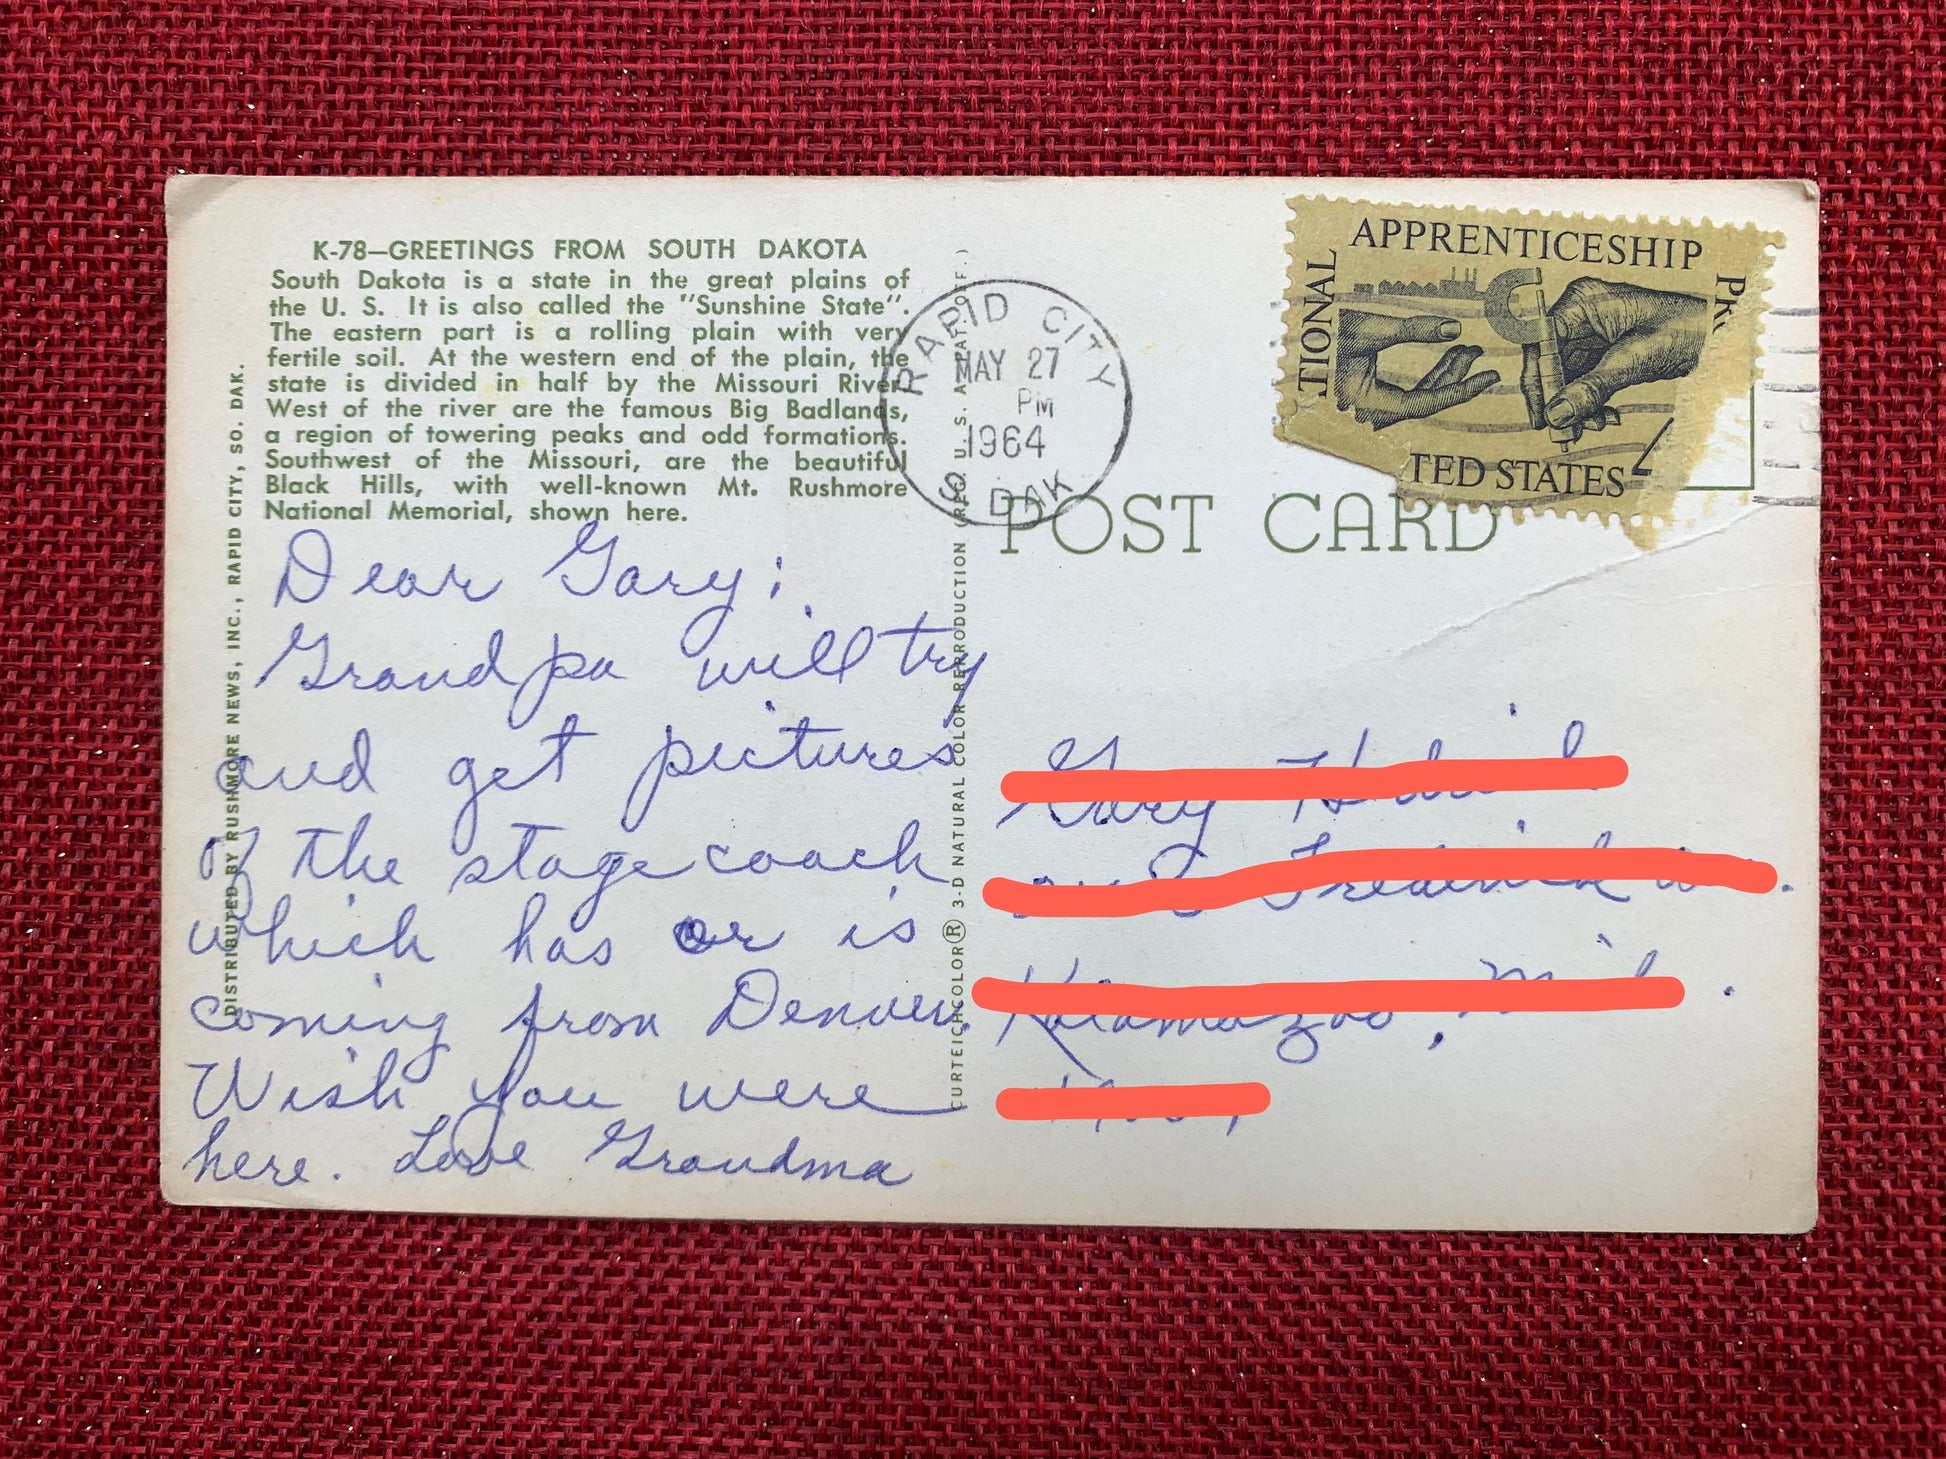 K-78—GREETINGS FROM SOUTH DAKOTA
South Dakota is a state in the great plains of
the U. S. It is also called the "Sunshine State".
The eastern part is a rolling plain with very
fertile soil. At the western end of the plain, the
state is divided in half by the Missouri River.
West of the river are the famous Big Badlands,
a region of towering peaks and odd formations.
Southwest of the Missouri, are the beautiful
Black Hills, with well-known Mt. Rushmore
National Memorial, shown here.
DISTRIBUTED BY RUSHMORE NEWS, INC., RAPID CITY, SO. DAK.
Dear Gary:
Grandpa will try
and get pictures
of the stagecoach
which has or is
coming from Denver.
Wish you were
here. Love Grandma
CURTEICHCOLOR® 3-D NATURAL COLOR REPRODUCTION (REG. U. S. A. PAT. OFF.)
RAPID CITY
MAY 27
PM
1964
S. DAK
TIONAL
APPRENTICESHIP
TED STATES
POST CARD